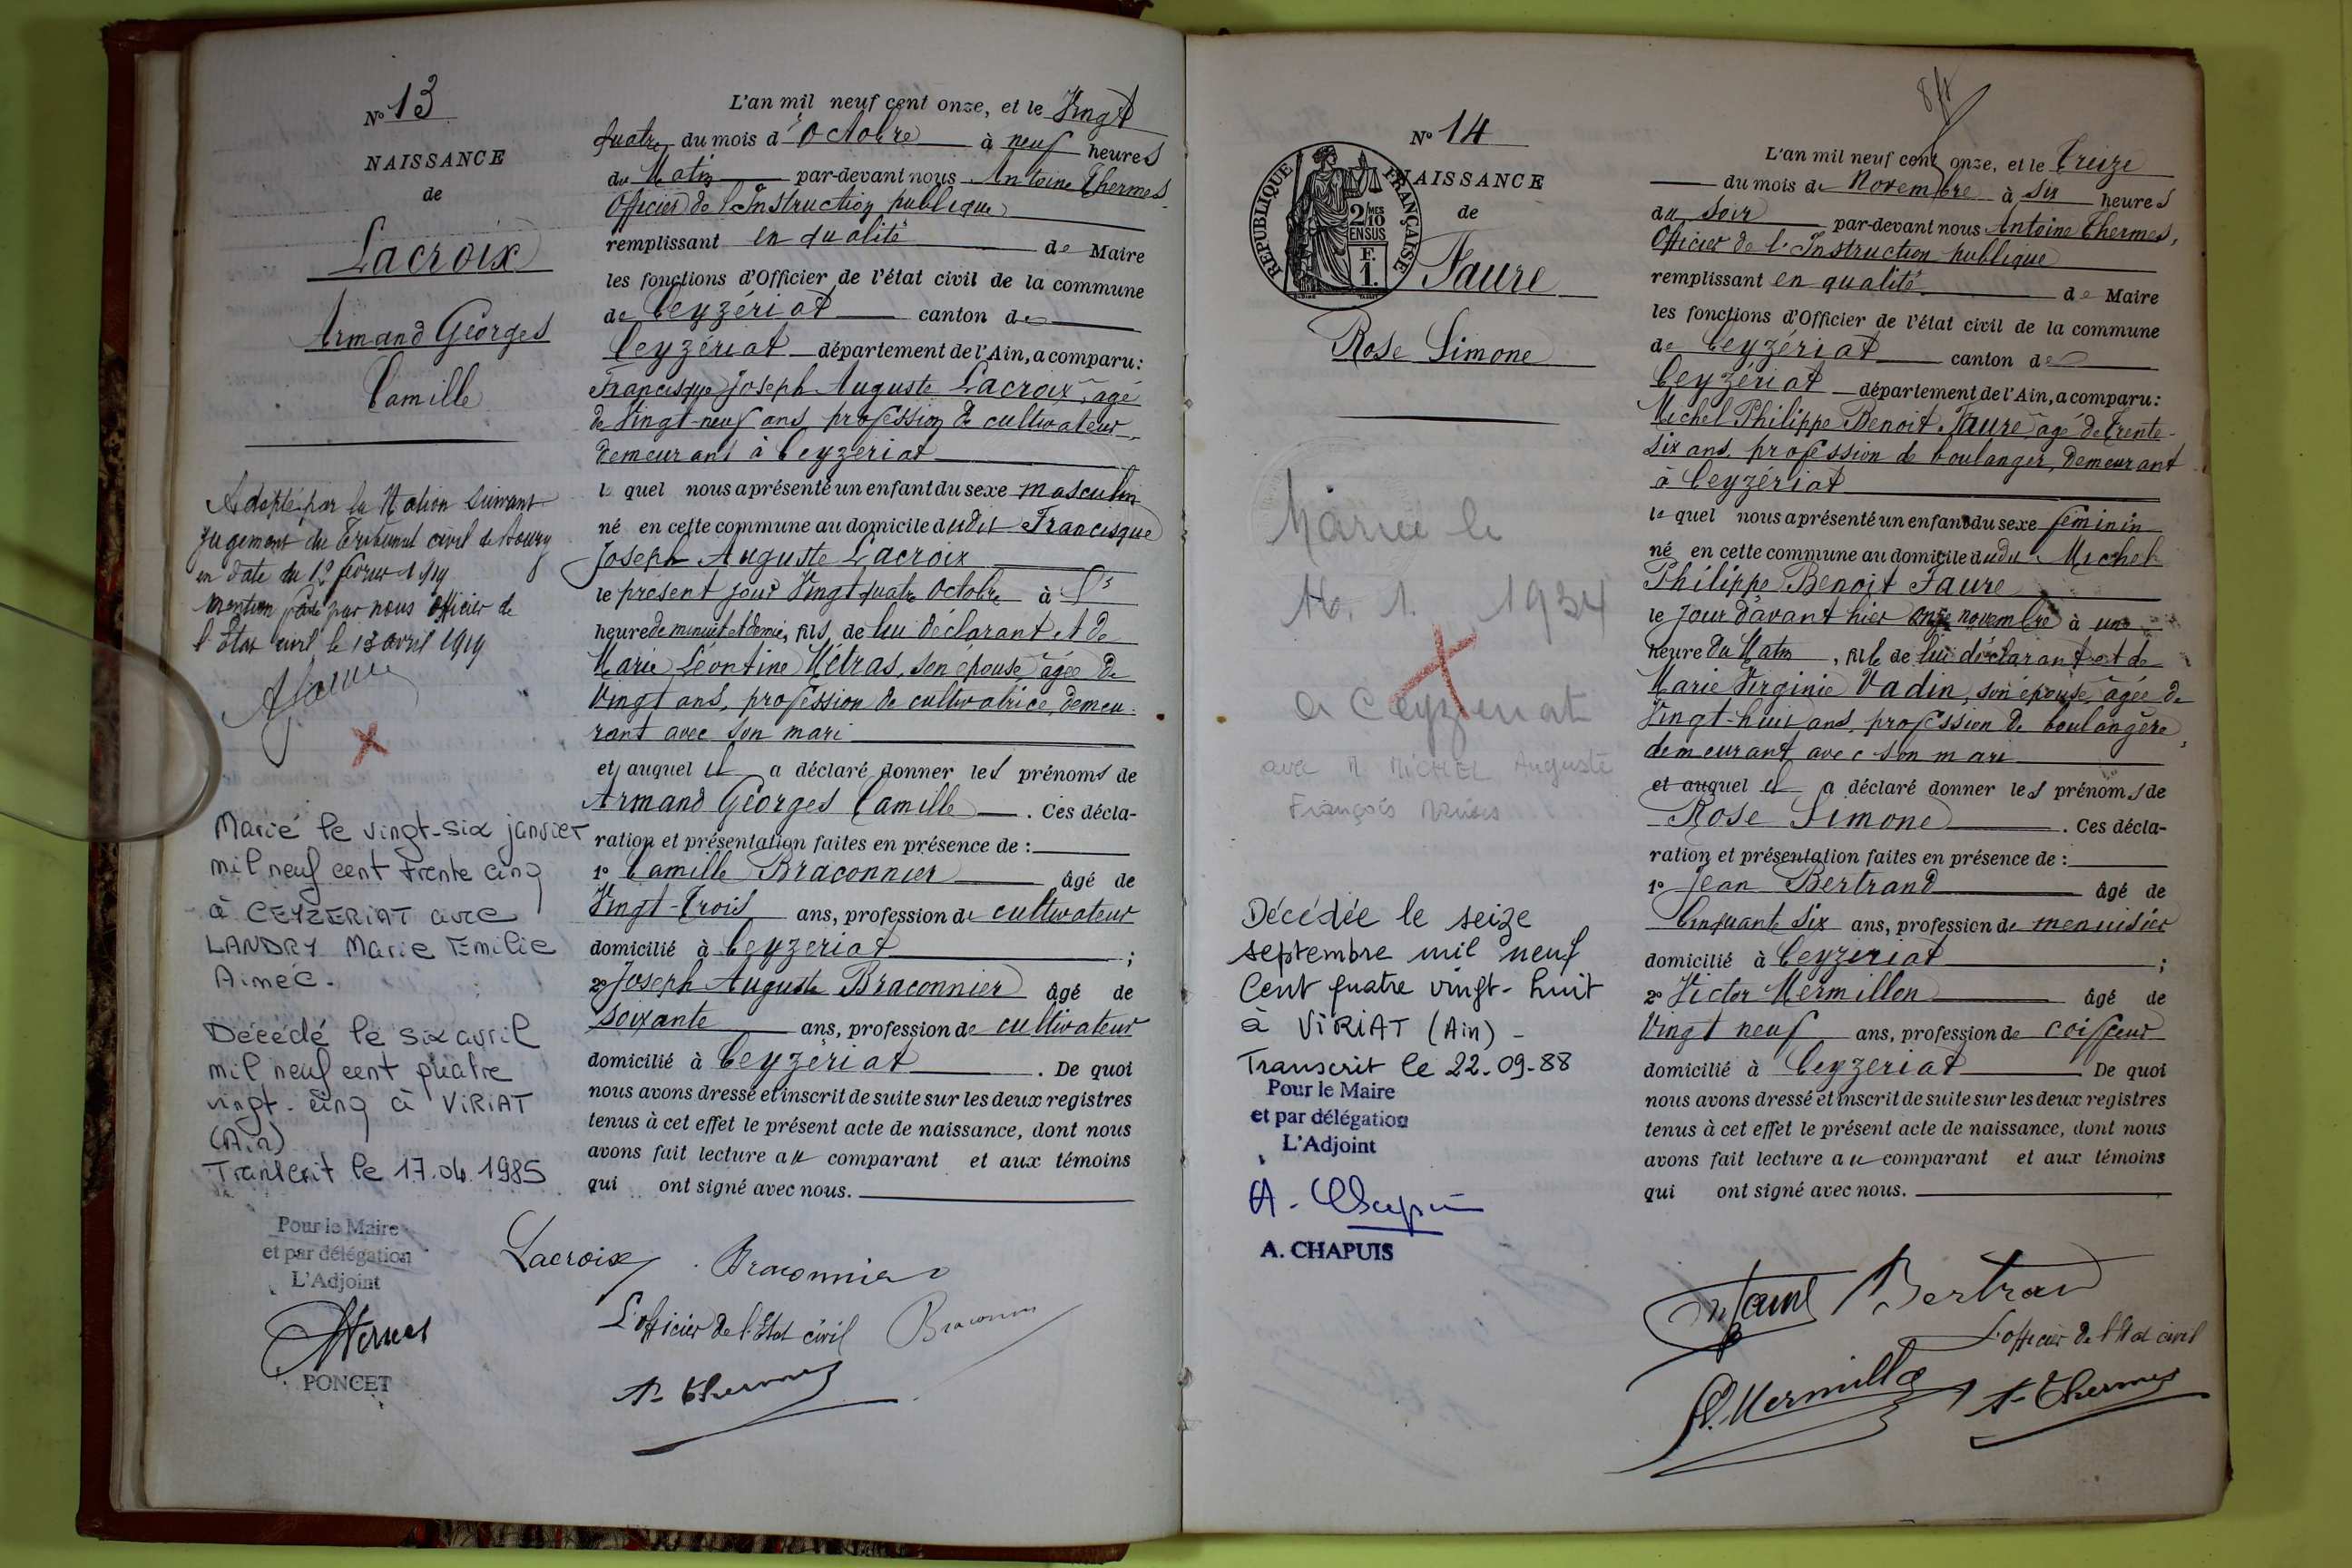 N° 13
NAISSANCE
de
Lacroix
Armand Georges
Camille
Adopté par la Nation suivant
jugement du Tribunal civil de Bourg
en date du 12 février 1919
Mention faite par nous Officier de
l'État civil le 13 avril 1919
Marié le vingt-six janvier
mil neuf cent trente cinq
à CEYZERIAT avec
LANDRY Marie Emilie
Aimée.
Décédé le six avril
mil neuf cent quatre
vingt-cinq à VIRIAT
(Ain)
Transcrit le 17.04.1985
Pour le Maire
et par délégation
L'Adjoint
PONCET
L'an mil neuf cent onze, et le Vingt
quatre du mois d'Octobre à neuf heures
du Matin par-devant nous Antoine Thermes
Officier de l'Instruction publique
remplissant en qualité de Maire
les fonctions d'Officier de l'état civil de la commune
de Ceyzériat canton de
Ceyzériat département de l'Ain, a comparu :
Francisque Joseph Auguste Lacroix, âgé
de Vingt-neuf ans, profession de cultivateur,
demeurant à Ceyzeriat
le quel nous a présenté un enfant du sexe masculin
né en cette commune au domicile dudit Francisque
Joseph Auguste Lacroix
le présent jour Vingt quatre Octobre à
heure de minuit et demie, fils de lui déclarant et de
Marie Léontine Métras, son épouse âgée de
Vingt ans, profession de cultivatrice, demeu-
rant avec son mari
et auquel il a déclaré donner les prénoms de
Armand Georges Camille. Ces décla-
ration et présentation faites en présence de :
1° Camille Braconnier âgé de
Vingt-Trois ans, profession de cultivateur
domicilié à Ceyzeriat ;
2° Joseph Auguste Braconnier âgé de
soixante ans, profession de cultivateur
domicilié à Ceyzériat. De quoi
nous avons dressé et inscrit de suite sur les deux registres
tenus à cet effet le présent acte de naissance, dont nous
avons fait lecture au comparant et aux témoins
qui ont signé avec nous.
Lacroix Braconnier
L'officier de l'État civil Braconnier
A. Thermes
N° 14
NAISSANCE
de
RÉPUBLIQUE FRANÇAISE
2/10 MES
EN SUS
F.
1.
Faure
Rose Simone
Mariée le
1934
à Ceyzeriat
avec M MICHEL Auguste
François
Décédée le seize
septembre mil neuf
Cent quatre vingt-huit
à VIRIAT (Ain) -
Transcrit le 22-09-88
Pour le Maire
et par délégation
L'Adjoint
A. CHAPUIS
L'an mil neuf cent onze, et le treize
du mois de Novembre à six heures
du soir par-devant nous Antoine Thermes,
Officier de l'Instruction publique
remplissant en qualité de Maire
les fonctions d'Officier de l'état civil de la commune
de Ceyzériat canton de
Ceyzériat département de l'Ain, a comparu :
Michel Philippe Benoit Faure âgé de trente-
six ans, profession de boulanger, demeurant
à Ceyzériat
le quel nous a présenté un enfant du sexe féminin
né en cette commune au domicile dudit Michel
Philippe Benoit Faure
le jour d'avant hier onze novembre à une
heure du Matin, fille de lui déclarant et de
Marie Virginie Vadin, son épouse, âgée de
Vingt-huit ans, profession de boulangère,
demeurant avec son mari
et auquel il a déclaré donner les prénoms de
Rose Simone. Ces décla-
ration et présentation faites en présence de :
1° Jean Bertrand âgé de
Cinquante six ans, profession de menuisier
domicilié à Ceyzeriat ;
2° Victor Mermillon âgé de
Vingt neuf ans, profession de coiffeur
domicilié à Ceyzeriat De quoi
nous avons dressé et inscrit de suite sur les deux registres
tenus à cet effet le présent acte de naissance, dont nous
avons fait lecture au comparant et aux témoins
qui ont signé avec nous.
Faure Bertrand
L'officier de l'État civil
V. Mermillon A. Thermes